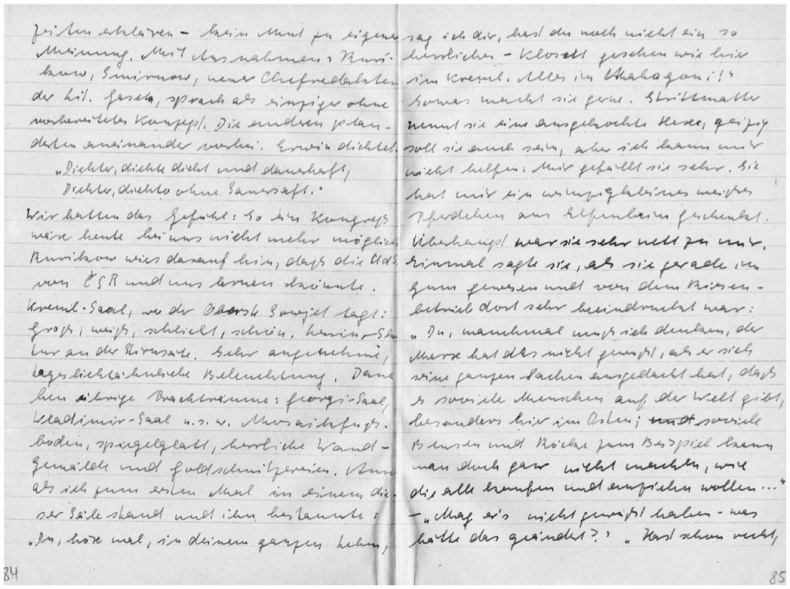 zeiten erklären – kein Mut zu eigener
Meinung. Mit Ausnahmen: Rurikow,
Smirnow, neuer Chefredakteur
der Lit. Gaseta, sprach als einziger ohne
vorbereitetes Konzept. Die anderen plauderten
aneinander vorbei. Erwin dichtet:
„Dichter, dichte dicht und dauerhaft,
Dichter, dichte ohne Sauersaft."
Wir hatten das Gefühl: So ein Kongreß
wäre heute bei uns nicht mehr möglich
Rurikow wies darauf hin, daß die UdS
von ČSR und uns lernen könnte.
Kreml-Saal, wo der Oberste Sowjet tagt:
Groß, weiß, schlicht, schön. Lenin-
tur an der Stirnseite. Sehr angenehme,
tageslichtähnliche Beleuchtung. Dane
ben übrige Prachträume: Georgi-Saal,
Wladimir-Saal u.s.w. Mosaikfuß-
böden, spiegelglatt, herrliche Wand-
gemälde und Goldschnitzereien. Anna
als ich zum ersten Mal in einem die-
ser Säle stand und ihn bestaunte:
„Du, hör mal, in deinem ganzen Leben,
84
sag ich dir, hast du noch nicht ein so
herrliches – Klosett gesehen wie hier
im Kreml. Alles in Mahagoni!"
Sowas macht sie gerne. Strittmatter
nennt sie eine ausgekochte Hexe, geizig
soll sie auch sein, aber ich kann mir
nicht helfen: Mir gefällt sie sehr. Sie
hat mir ein winzigkleines weißes
Pferdchen aus Elfenbein geschenkt.
Überhaupt war sie sehr nett zu mir.
Einmal sagte sie, als sie gerade im
Gum gewesen und von dem Riesen-
betrieb dort sehr beeindruckt war:
„Du, manchmal muß ich denken, der
Marx hat das nicht gewußt, als er sich
seine ganzen Sachen ausgedacht hat, daß
es soviele Menschen auf der Welt gibt,
besonders hier im Osten; und soviele
Blusen und Röcke zum Beispiel kann
man doch gar nicht machen, wie
die alle kaufen und anziehen wollen..."
– „Mag er's nicht gewußt haben – was
hätte das geändert?" „Hast schon recht,
85